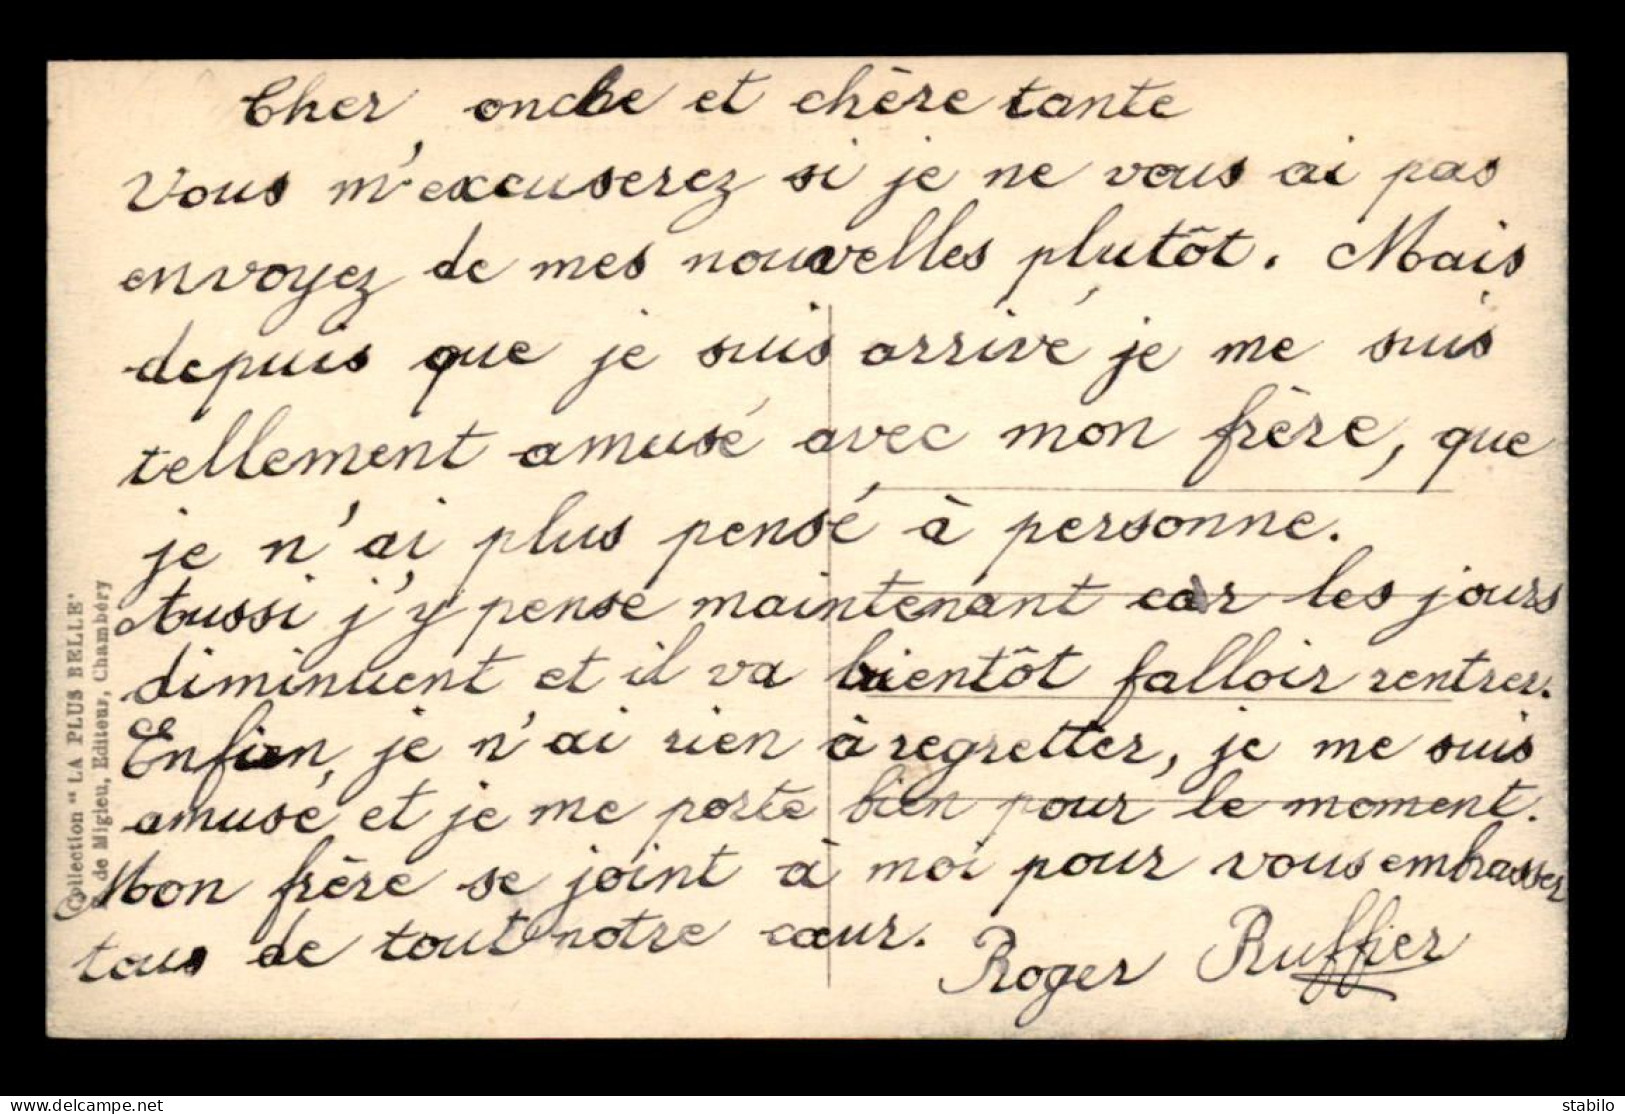 Cher oncle et chère tante
Vous m'excuserez si je ne vous ai pas
envoyez de mes nouvelles plutôt. Mais
depuis que je suis arrivé je me suis
tellement amusé avec mon frère, que
je n'ai plus pensé à personne.
Aussi j'y pense maintenant car les jours
diminuent et il va bientôt falloir rentrer.
Enfien, je n'ai rien à regretter, je me suis
amusé et je me porte bien pour le moment.
Mon frère se joint à moi pour vous embrasser
tous de tout notre cœur.
Roger Ruffier
Collection "LA PLUS BELLE"
de Miglieu, Editeur, Chambéry
www.delcampe.net
stabilo